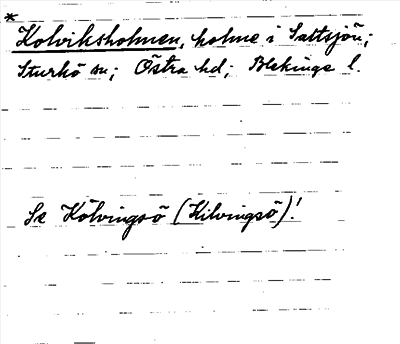 *
Kolviksholmen, holme i Saltsjön;
Sturkö sn; Östra hd; Blekinge l.
Se Kölvingsö (Kilvingsö)!